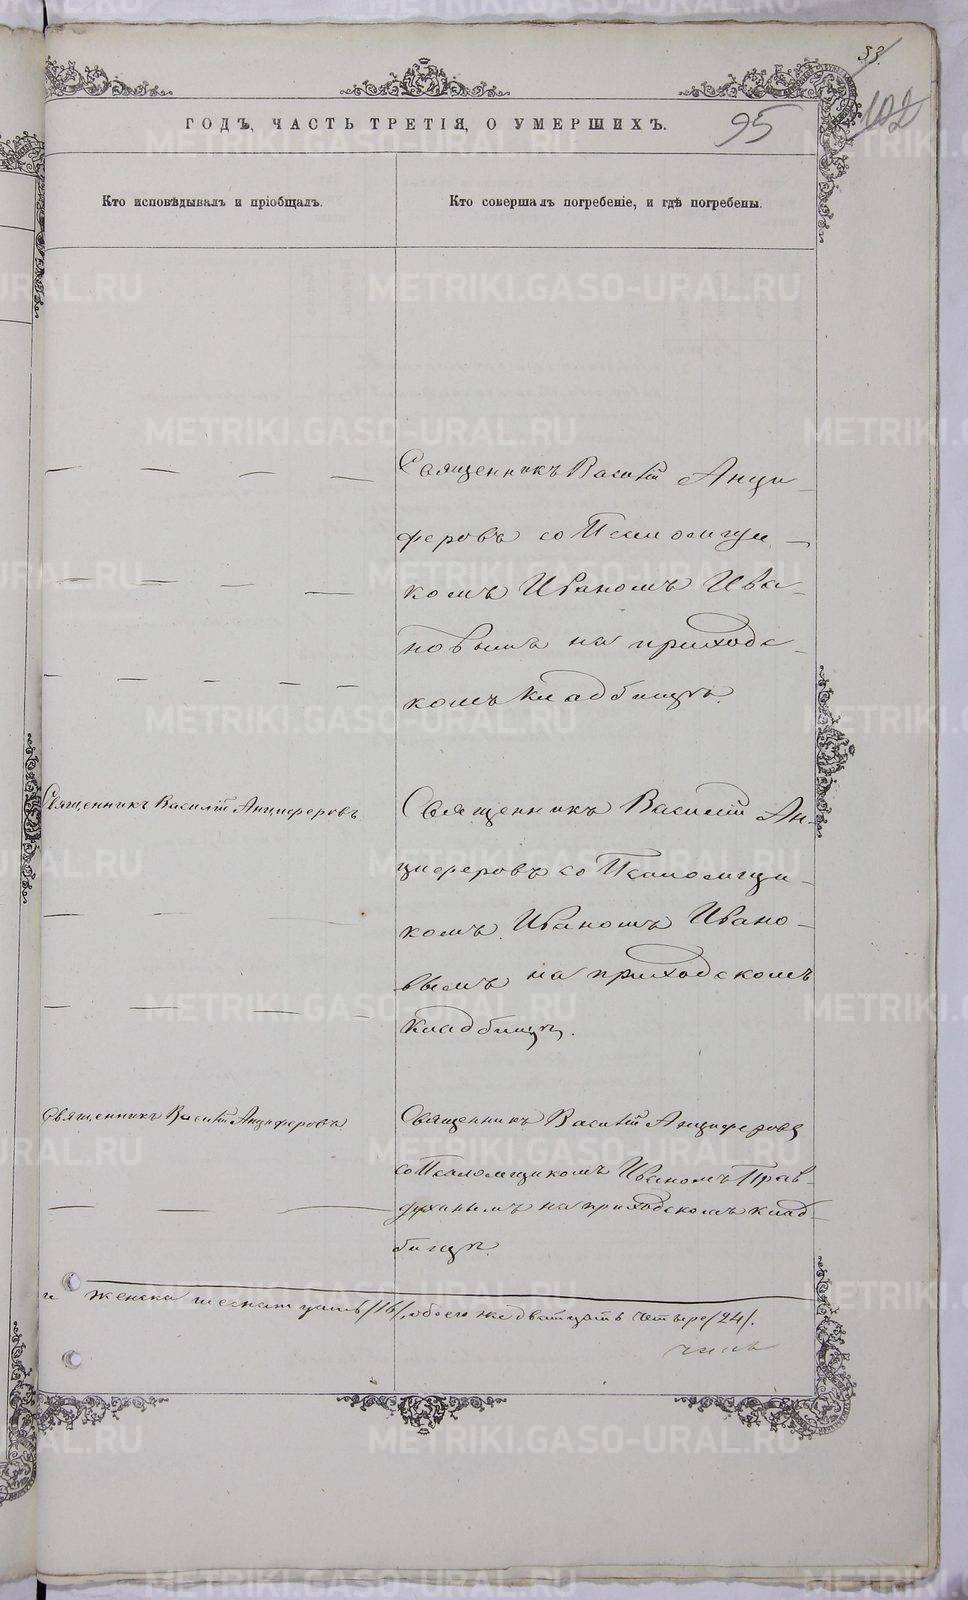 53.
102
95
ГОДЪ, ЧАСТЬ ТРЕТІЯ, О УМЕРШИХЪ.
Кто исповѣдывалъ и пріобщалъ.
Кто совершалъ погребеніе, и гдѣ погребены.
Священникъ Василій Анци-
феровъ со Псаломщи-
комъ Иваномъ Ива-
новымъ на приходс-
комъ кладбищѣ.
Священникъ Василій Анциферовъ
Священникъ Василій Ан-
циферовъ со Псаломщи-
комъ Иваномъ Ивано-
вымъ на приходскомъ
кладбищѣ.
Священникъ Василій Анциферовъ.
Священникъ Василій Анциферовъ
со Псаломщикомъ Иваномъ Прав-
духинымъ на приходскомъ клад-
бищѣ.
и женска шеснатцать /16/, обоего же дватцать четыре /24/.
METRIKI.GASO-URAL.RU